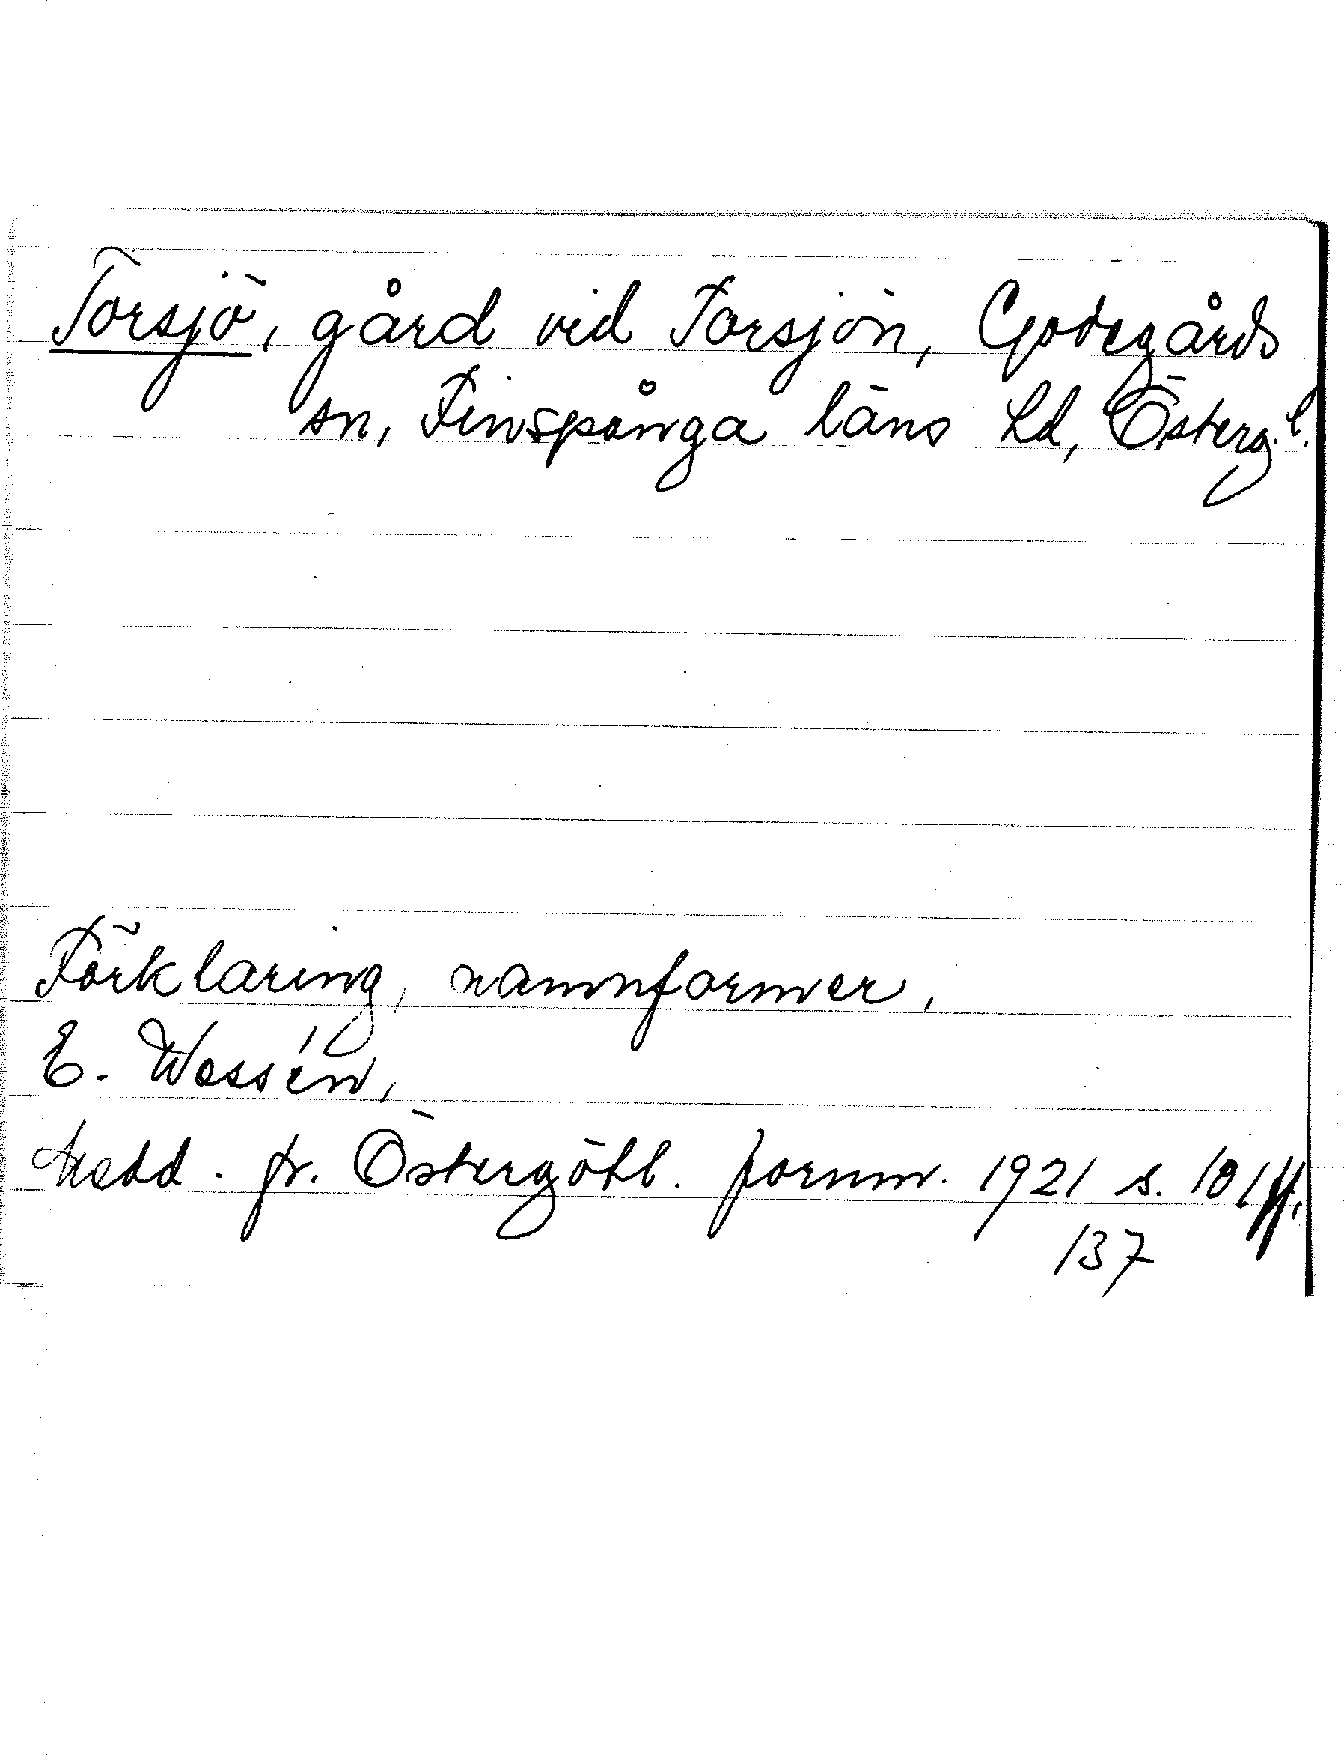 Torsjö, gård vid Torsjön, Godegårds
sn, Finspånga läns hd, Österg. l.
Förklaring, namnformer,
E. Wessén,
Medd. fr. Östergötl. fornm. 1921 s. 101 ff.
137